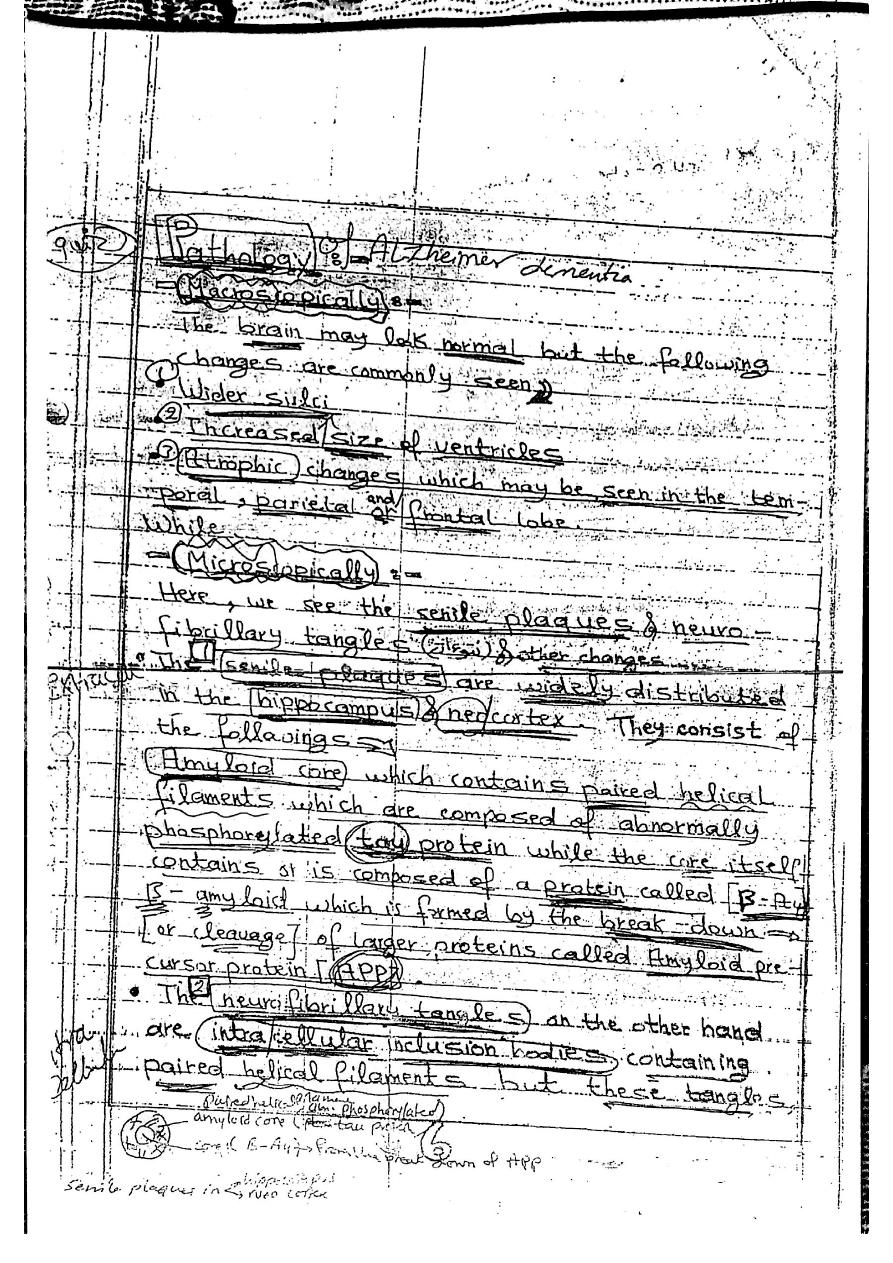 quiz
Pathology of Alzheimer dementia
- Macroscopically :-
The brain may look normal but the following
changes are commonly seen
① Wider sulci
② Increased size of ventricles
③ Atrophic changes which may be seen in the tem-
poral, parietal and/or frontal lobe.
While
- Microscopically :-
Here, we see the senile plaques & neuro-
fibrillary tangles & other changes
1
The senile plaques are widely distributed
in the hippocampus & neo/cortex. They consist of
the followings
Amyloid core which contains paired helical
filaments which are composed of abnormally
phosphorylated tau protein while the core itself
contains or is composed of a protein called [B-Ay
B-amyloid which is formed by the break-down
[or cleavage] of larger proteins called Amyloid pre-
cursor protein [APP].
2
• The neurofibrillary tangles on the other hand
are intra/cellular inclusion bodies containing
paired helical filaments but these tangles
amyloid core
core B-Ay from the break down of APP
senile plaques in hippocampus
neo cortex